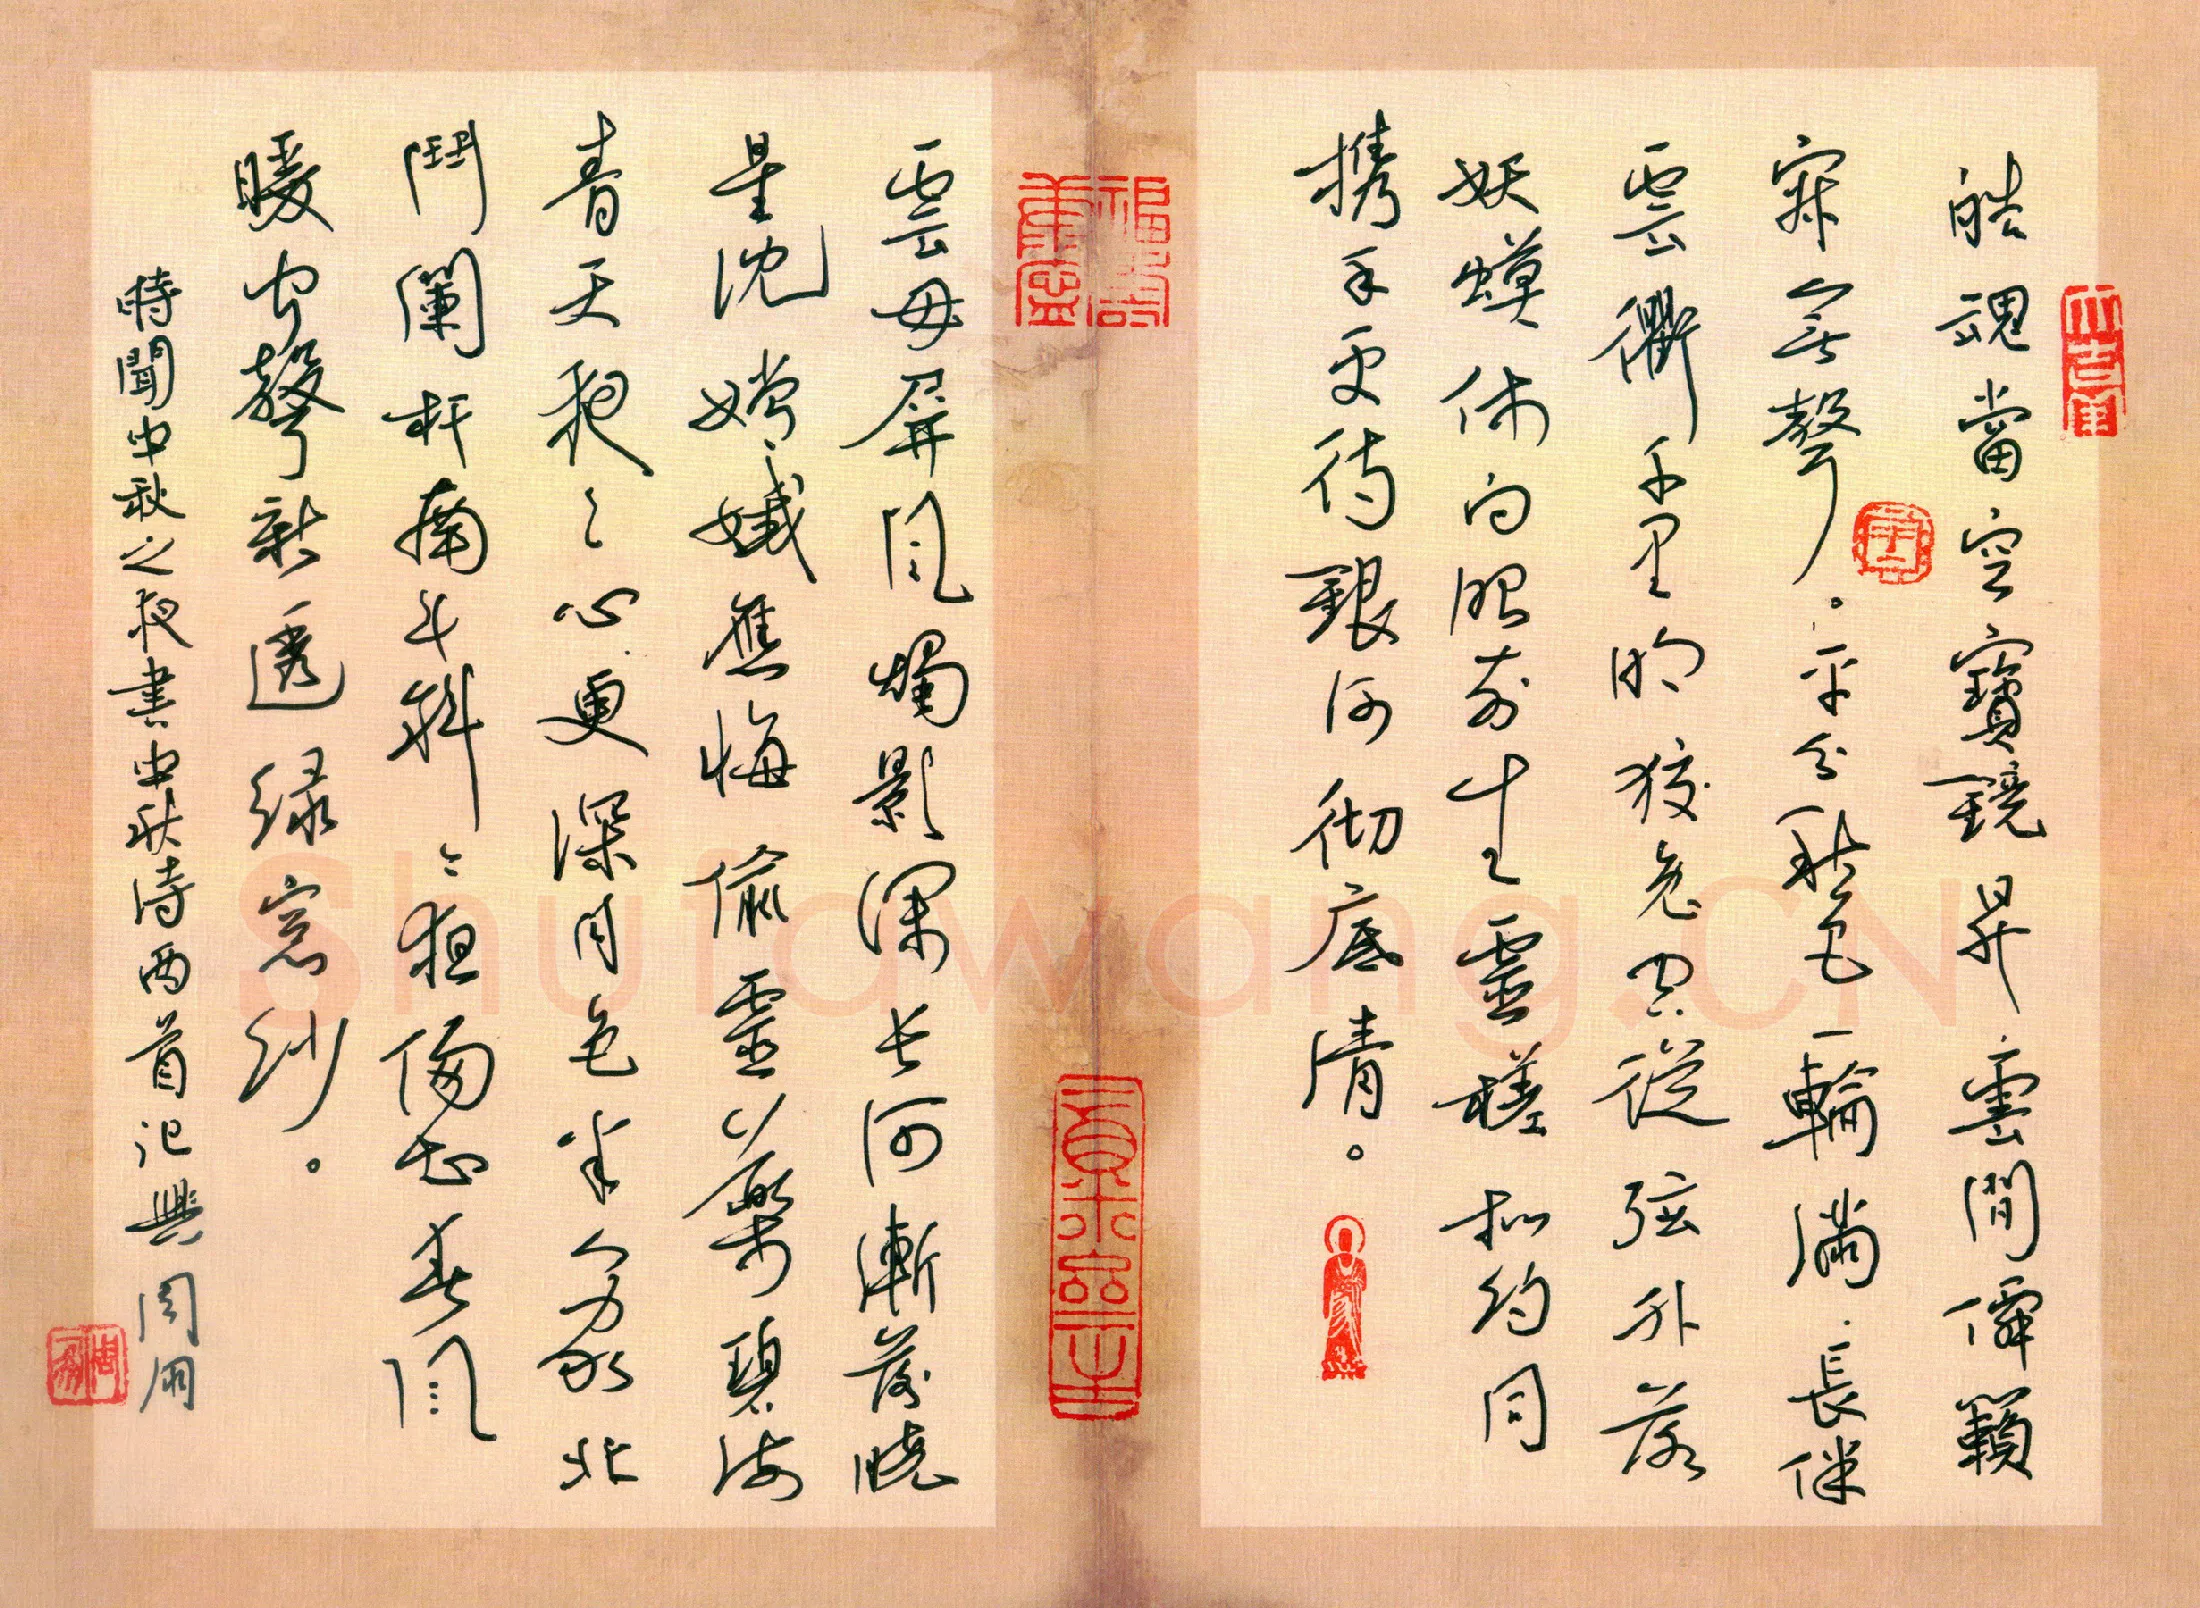 皓魂當空寶鏡昇雲間僊籟
寂無聲。平分秋色一輪滿長伴
雲衢千里明狡兔空從弦外落
妖蟆休向眼前生靈槎擬約同
携手更待銀河彻底清。
雲母屏風燭影深長河漸落曉
星沈嫦娥應悔偷靈藥碧海
青天夜〻心更深月色半人家北
鬥闌杆南斗斜偏知春風
暖虫聲新透绿窓纱。
時聞中秋之夜書中秋诗两首记興周
Shufawang.CN